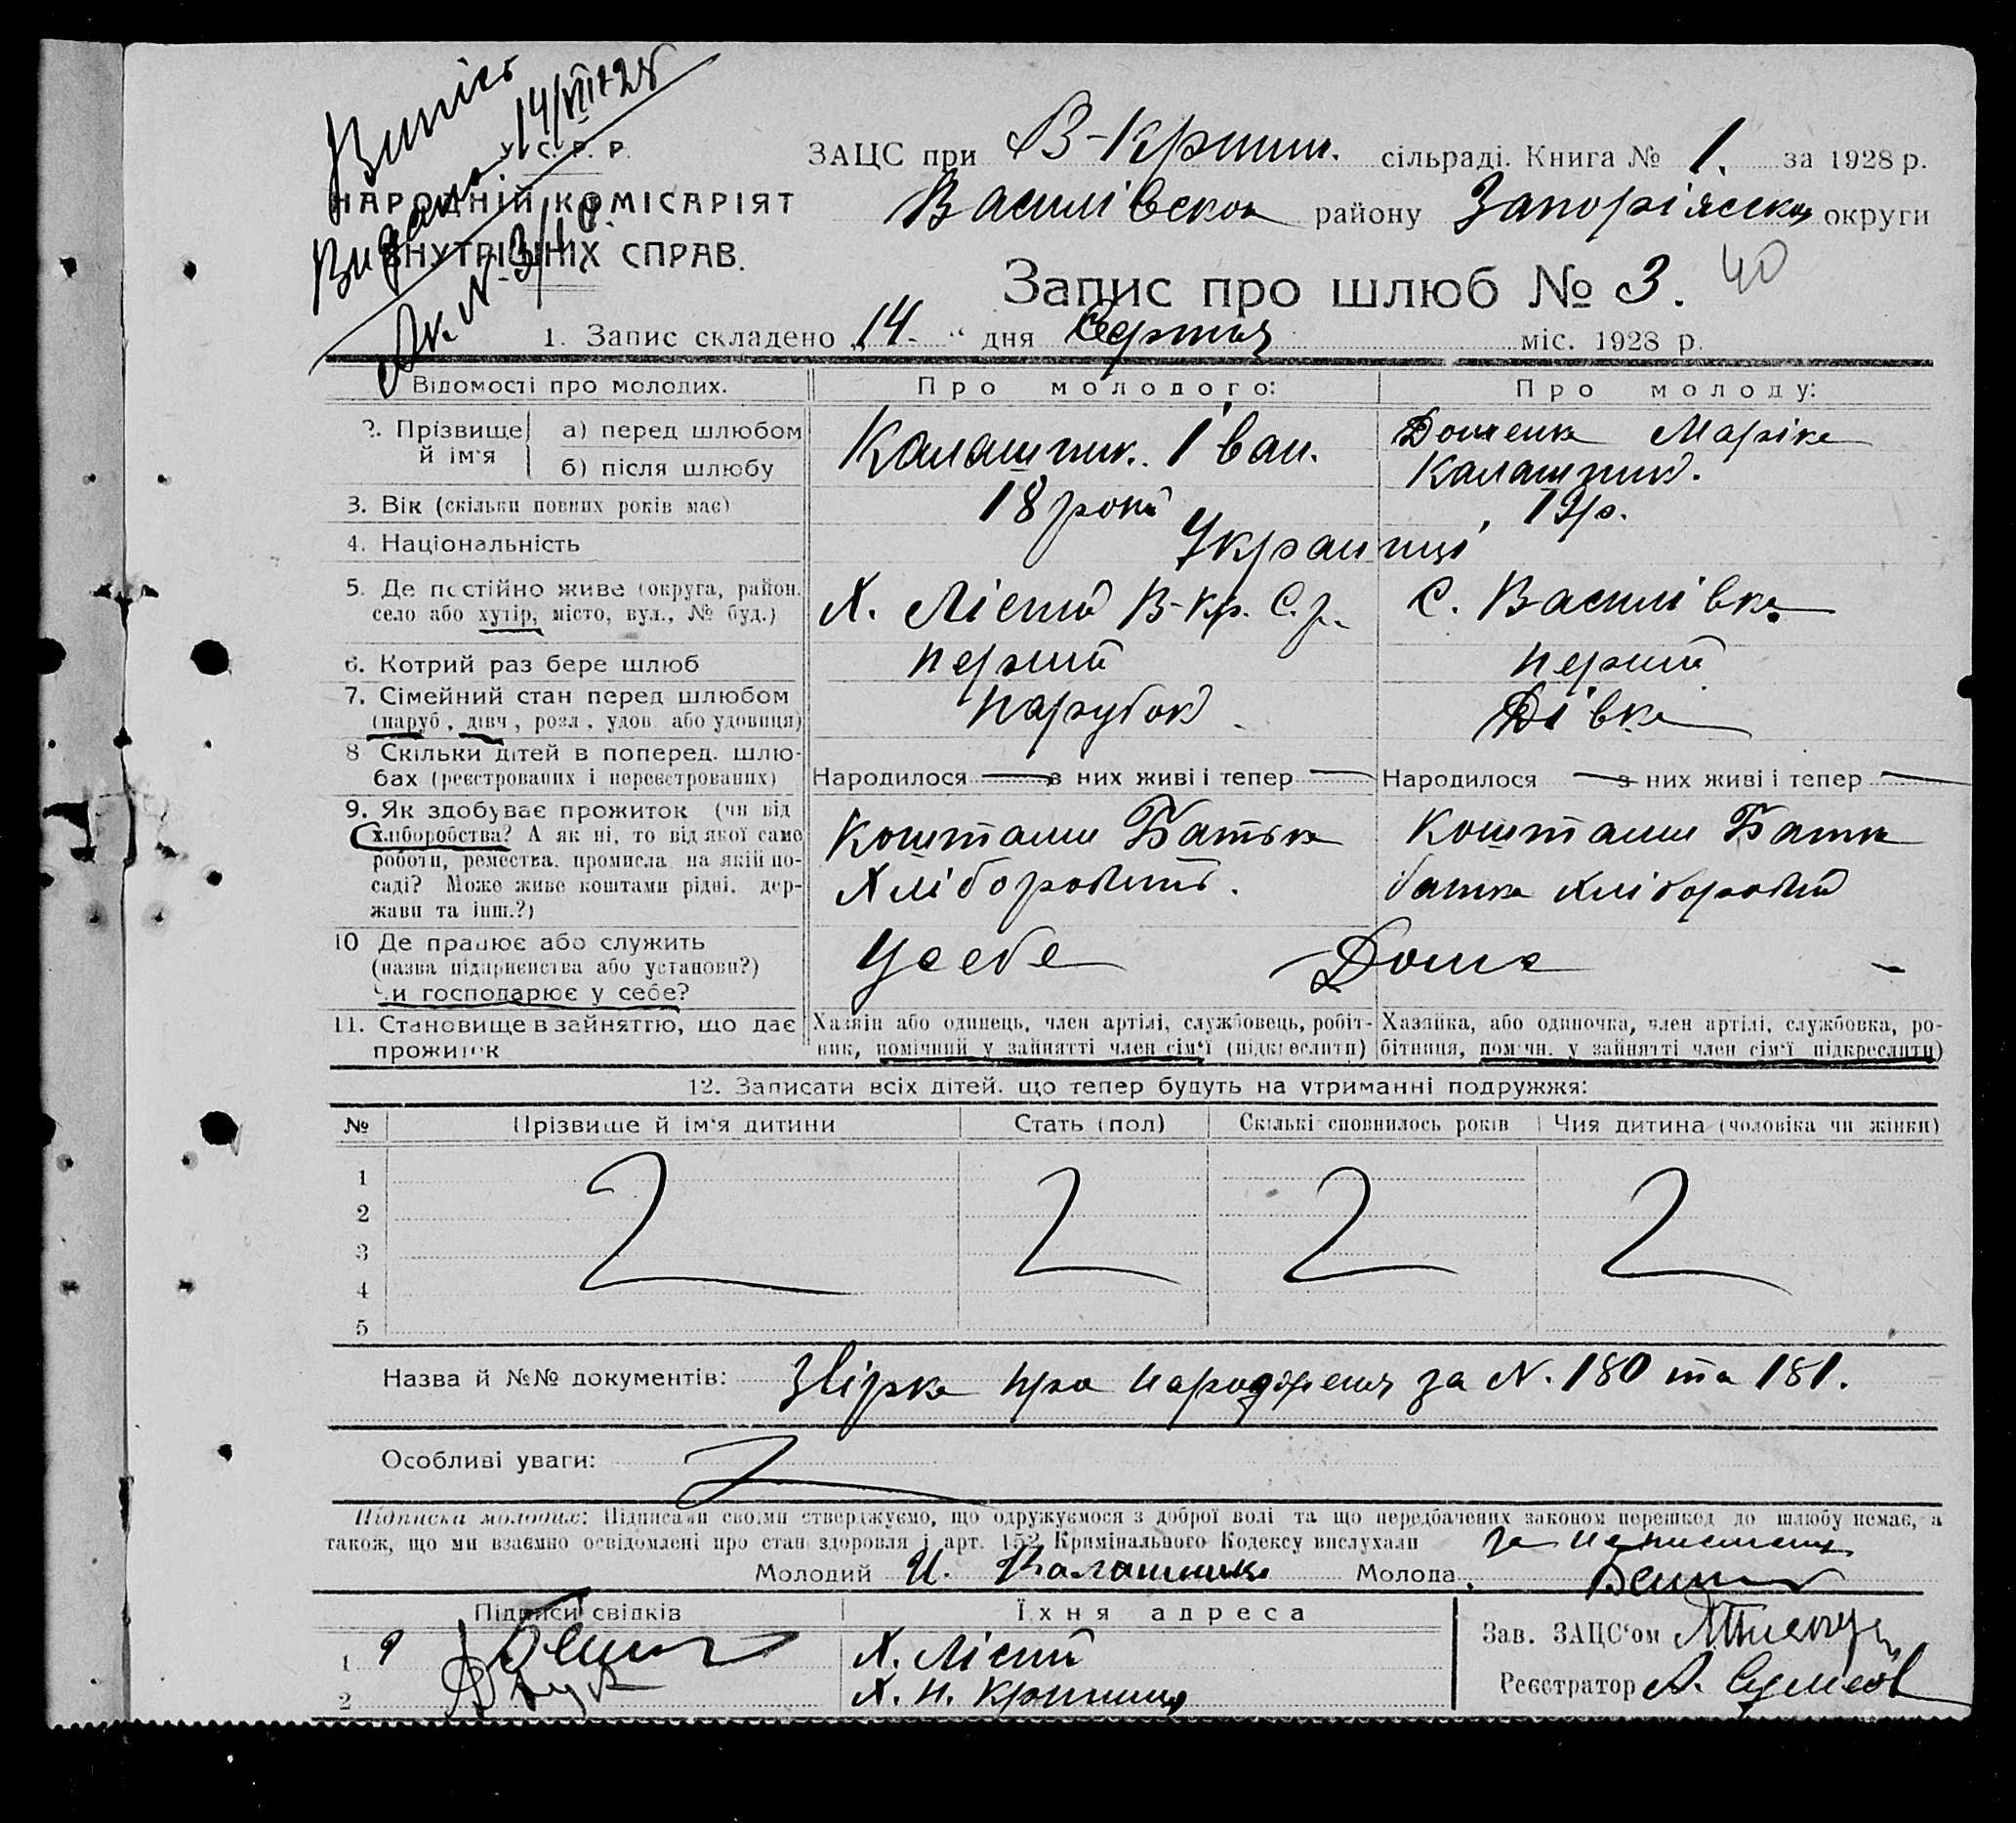 Випись
Видана 14/VIII-28
Ак. N-3/
У. С. Р. Р.
НАРОДНІЙ КОМІСАРІЯТ
ВНУТРІШНІХ СПРАВ.
ЗАЦС при В-Криниц. сільраді. Книга № 1. за 1928 р.
Василівськоі району Запоріжськоі округи
Запис про шлюб № 3. 40
1. Запис складено „14“ дня Серпня міс. 1928 р.
Відомості про молодих.
Про молодого:
Про молоду:
2. Прізвище й ім'я
а) перед шлюбом
б) після шлюбу
Калашник. Іван.
Маріка
Калашник.
3. Вік (скільки повних років має)
18 років
19 р.
4. Національність
Украинці
5. Де постійно живе (округа, район.
село або хутір, місто, вул., № буд.)
Х. Лісний В-Кр. С.р.
С. Василівка
6. Котрий раз бере шлюб
перший
перший
7. Сімейний стан перед шлюбом
(паруб., дівч., розл., удов. або удовиця)
Парубок
Дівка
8 Скільки дітей в поперед. шлю-
бах (реєстрованих і нереєстрованих)
Народилося — з них живі і тепер —
Народилося — з них живі і тепер —
9. Як здобуває прожиток (чи від
хліборобства? А як ні, то від якої само
роботи, ремества. промисла на якій по-
саді? Може живе коштами рідні. дер-
жави та інш.?)
Коштами Батька
Хлібороб.
Коштами Батька
батька хлібороб
10 Де працює або служить
(назва підприємства або установи?)
Чи господарює у себе?
У себе
Дома
–
11. Становище в зайняттю, що дає
прожиток
Хазяїн або одинець, член артілі, службовець, робіт-
ник, помічний у зайнятті член сім'ї (підкреслити)
Хазяйка, або одиночка, член артілі, службовка, ро-
бітниця, помічн. у зайнятті член сім'ї підкреслити)
12. Записати всіх дітей. що тепер будуть на утриманні подружжя:
№
Прізвище й ім'я дитини
Стать (пол)
Скількі сповнилось років
Чия дитина (чоловіка чи жінки)
1
2
3
4
5
Назва й №№ документів: Звірка про народження за N. 180 та 181.
Особливі уваги:
Підписка молодих: Підписами своїми стверджуємо, що одружуємося з доброї волі та що передбачених законом перешкод до шлюбу немає, а
також, що ми взаємно освідомлені про стан здоровля і арт. 152 Кримінального Кодексу вислухали
Молодий И. Калашник Молода за неписьмену
Підписи свідків
Їхня адреса
1
Х. Лісний
2
Х. Н. Криниця
Зав. ЗАЦС'ом
Реєстратор А.